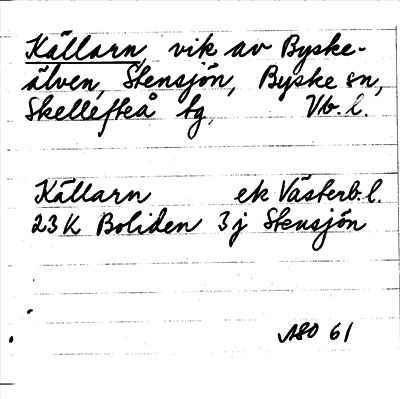 Källarn, vik av Byske-
älven, Stensjön, Byske sn,
Skellefteå tg, Vb. l.
Källarn ek Västerb. l.
23K Boliden 3j Stensjön
ASO 61